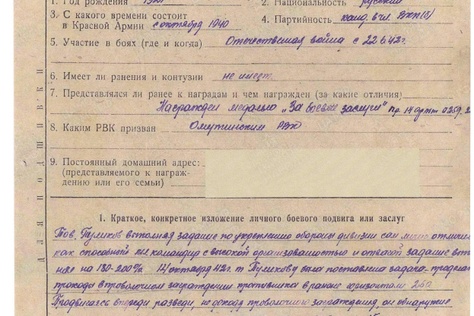 1. Год рождения 2. Национальность русский
3. С какого времени состоит
в Красной Армии с октября 1940 4. Партийность канд. в чл. ВКП(б)
5. Участие в боях (где и когда) Отечественная война с 22.6.42г.
6. Имеет ли ранения и контузии не имеет.
7. Представлялся ли ранее к наградам и чем награжден (за какие отличия)
Награжден медалью „За боевые заслуги" пр. 14
8. Каким РВК призван Омутинским РВК
9. Постоянный домашний адрес:
(представляемого к награж-
дению или его семьи)
для подшивки
1. Краткое, конкретное изложение личного боевого подвига или заслуг
Тов. Куликов выполняя задание по укреплению обороны дивизии сам лично
как способный командир с высокой организованностью и задание
на 180-200%. 12 октября 42г. т. Куликову была поставлена задача
проходы в проволочном заграждении противника в районе
Продвигаясь впереди разведки, не доходя проволочного заграждения он обнаружил